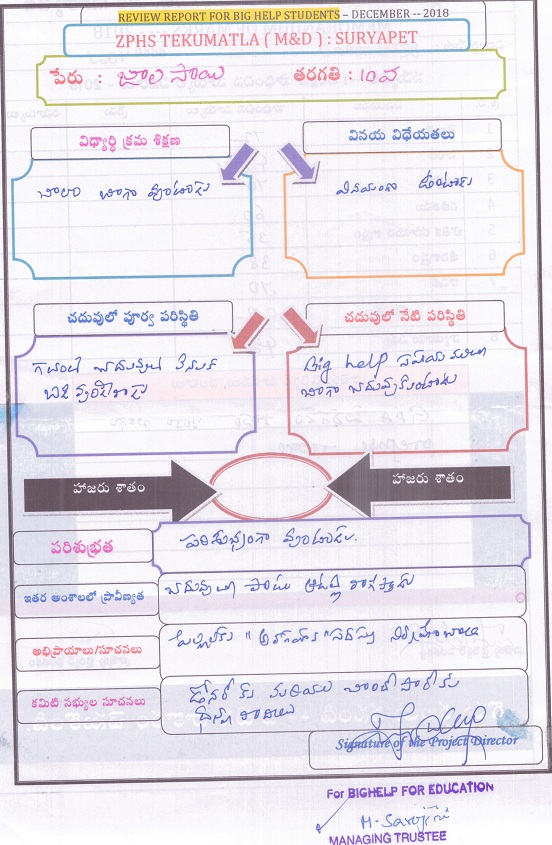 REVIEW REPORT FOR BIG HELP STUDENTS – DECEMBER -- 2018
ZPHS TEKUMATLA ( M&D ) : SURYAPET
పేరు : బాల సాయి తరగతి : 10వ
విధ్యార్థి క్రమ శిక్షణ
వినయ విధేయతలు
చాలా బాగా వుంటాడు
వినయంగా ఉంటాడు
చదువులో పూర్వ పరిస్థితి
చదువులో నేటి పరిస్థితి
గతంలో చదువులో వెనుక
బడి వుండేవాడు
Big help సహాయం వలన
బాగా చదువుకుంటున్నాడు
హాజరు శాతం
హాజరు శాతం
పరిశుభ్రత
పరిశుభ్రంగా వుంటాడు.
ఇతర అంశాలలో ప్రావీణ్యత
చదువుతో పాటు ఆటల్లో రాణిస్తాడు
అభిప్రాయాలు/సూచనలు
పిల్లలకు "అవగాహన" సదస్సు నిర్వహించాలి
కమిటి సభ్యుల సూచనలు
డోనర్ కు మరియు చాందిపారికు
ధన్యవాదాలు
Signature of the Project Director
For BIGHELP FOR EDUCATION
M. Sarojini
MANAGING TRUSTEE